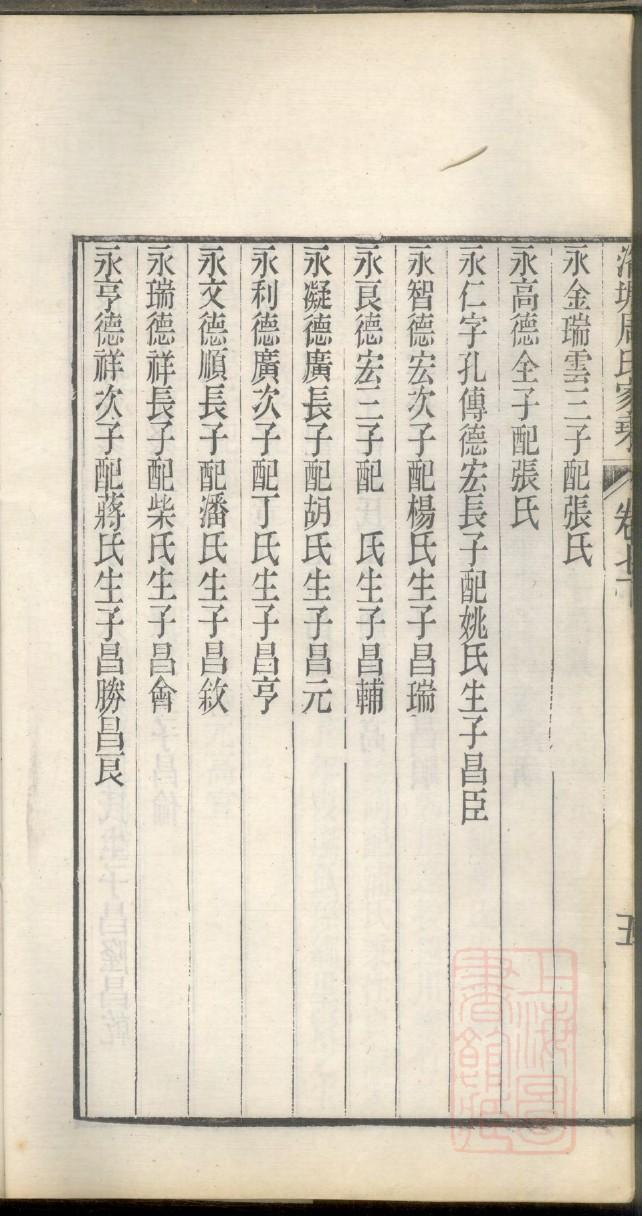 周氏家
卷七
五
永金瑞雲三子配張氏
永高德全子配張氏
永仁字孔傳德宏長子配姚氏生子昌臣
永智德宏次子配楊氏生子昌瑞
永良德宏三子配　氏生子昌輔
永凝德廣長子配胡氏生子昌元
永利德廣次子配丁氏生子昌亨
永文德順長子配潘氏生子昌敘
永瑞德祥長子配柴氏生子昌會
永亨德祥次子配蔣氏生子昌勝昌良
上海圖書館藏